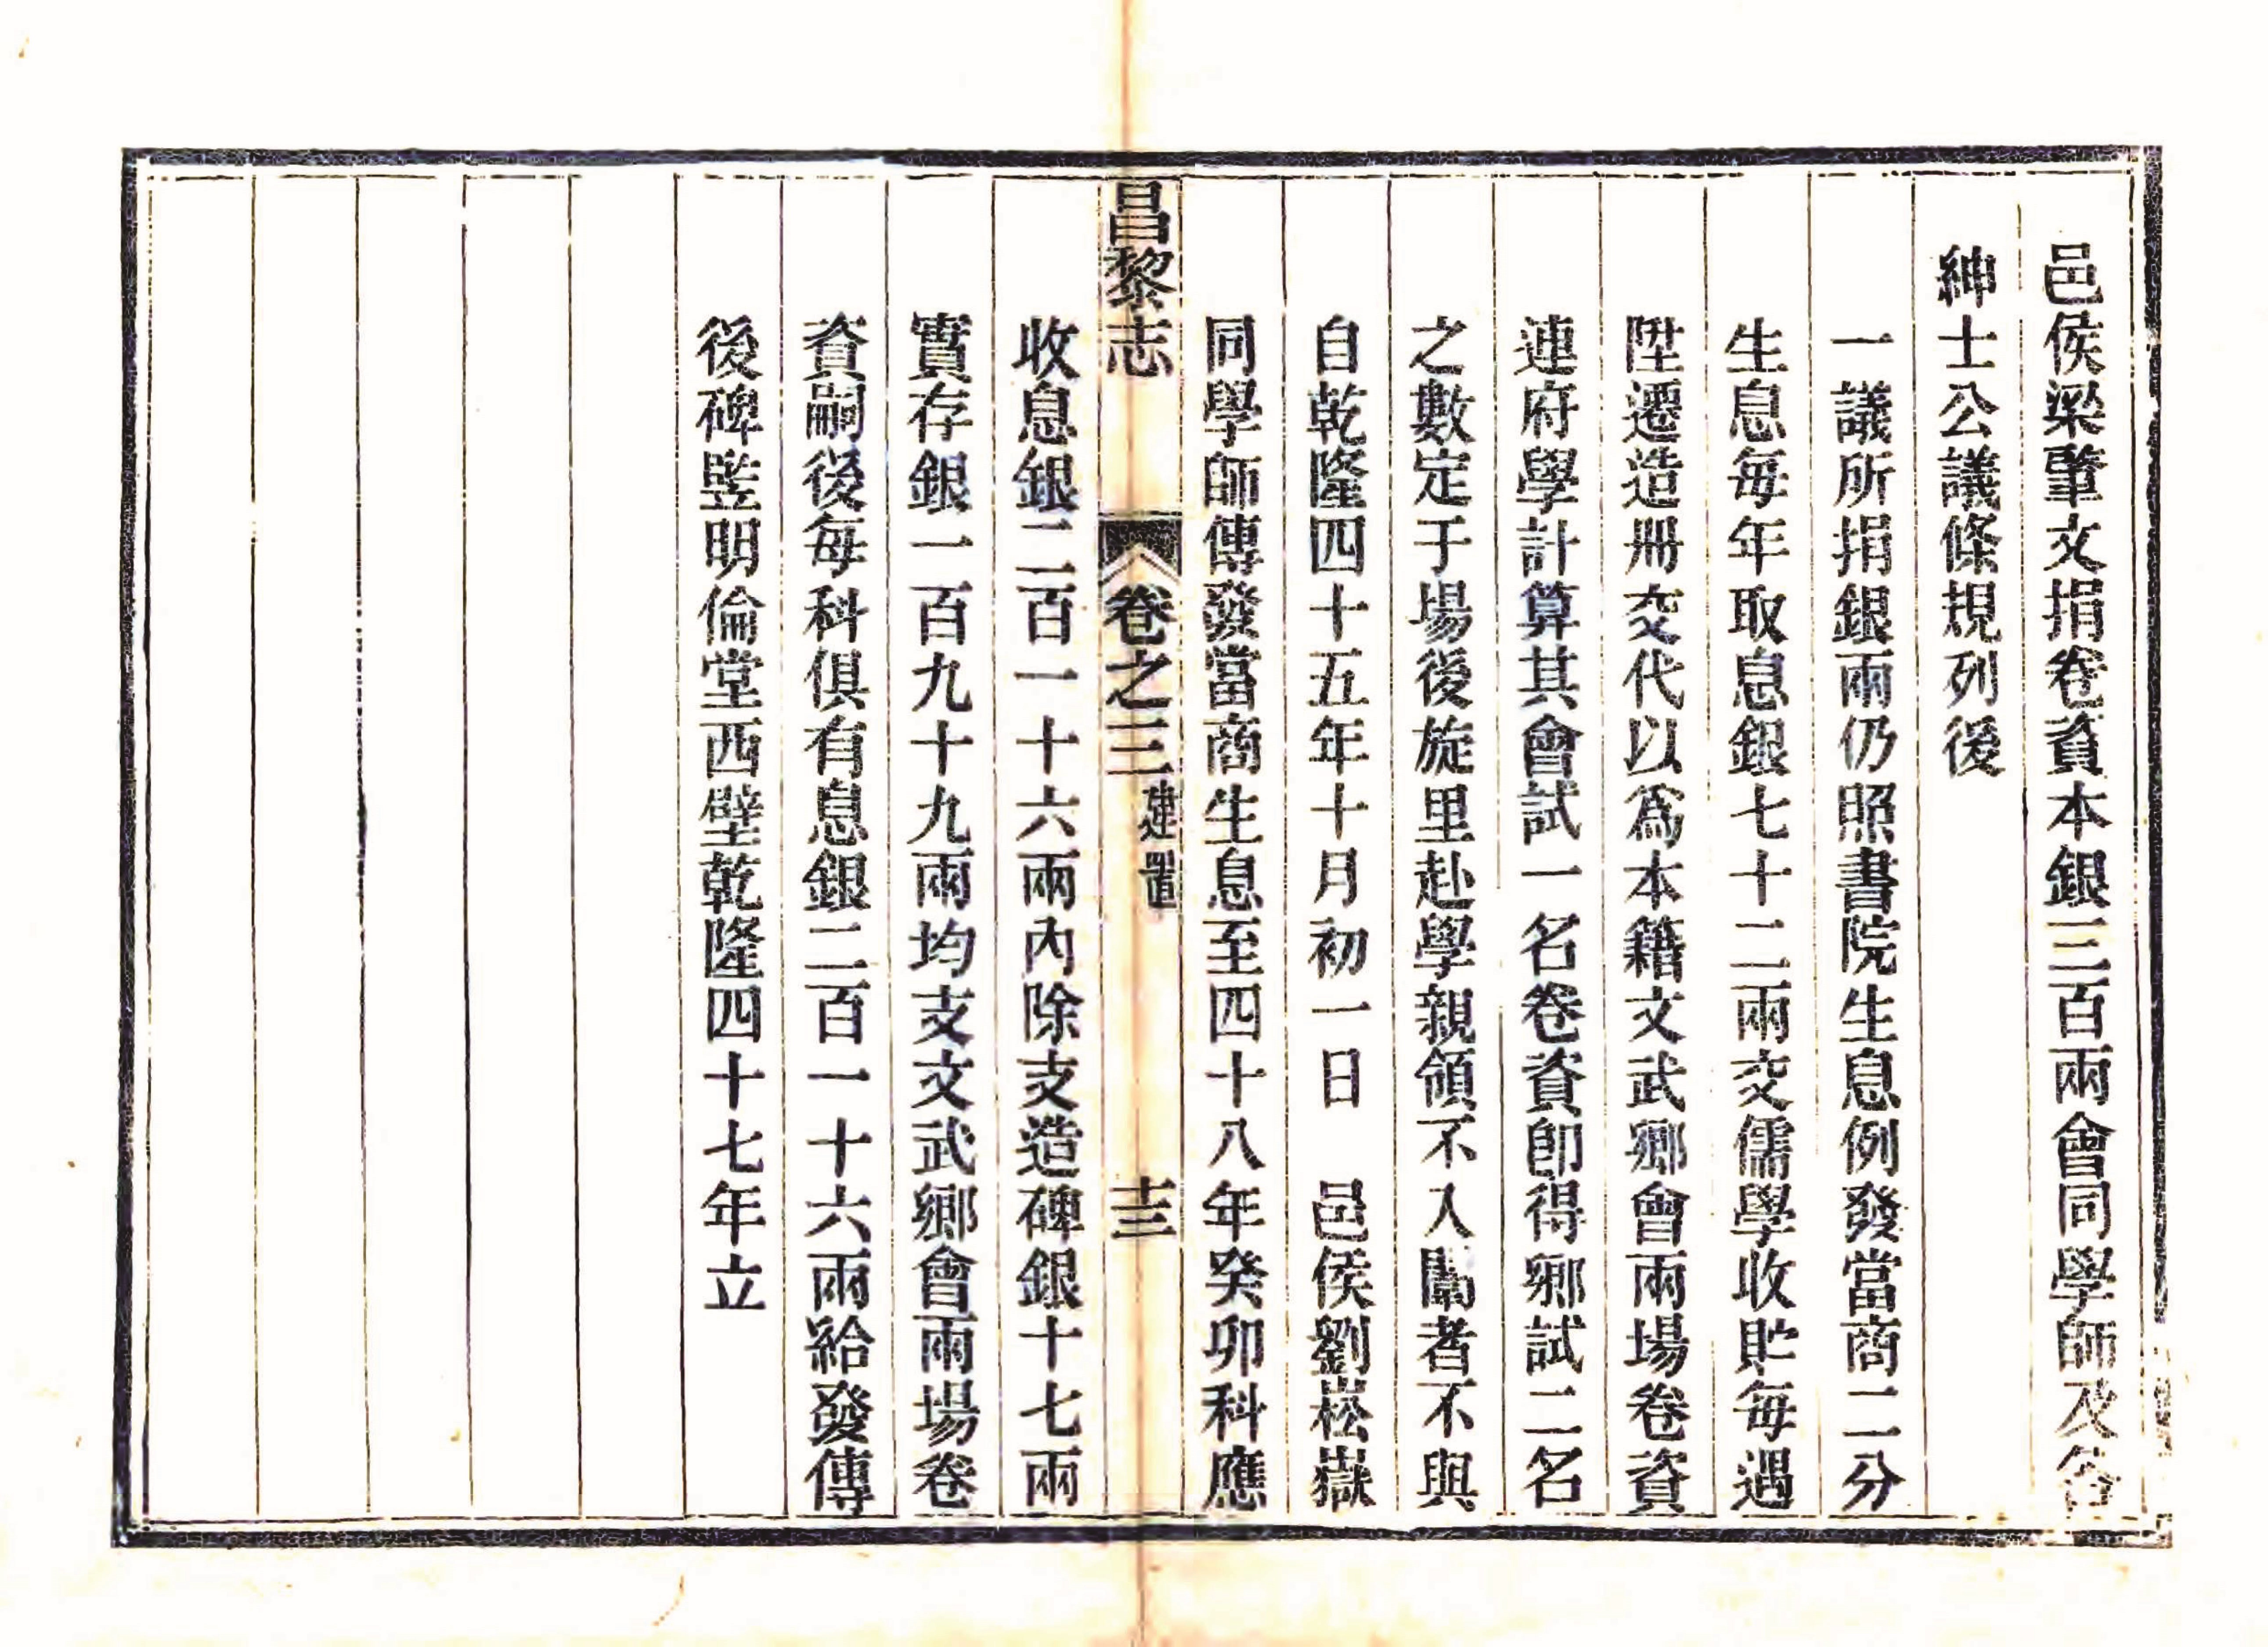 邑侯梁肇文捐卷資本銀三百兩會同學師及各
紳士公議條規列後
一議所捐銀兩仍照書院生息例發當商二分
生息每年取息銀七十二兩交儒學收貯每遇
陞遷造冊交代以爲本籍文武鄉會兩場卷資
連府學計算其會試一名卷資卽得鄉試二名
之數定于場後旋里赴學親領不入闈者不與
自乾隆四十五年十月初一日　邑侯劉崧嶽
同學師傳發當商生息至四十八年癸卯科應
昌黎志　卷之三　建置　十三
收息銀二百一十六兩內除支造碑銀十七兩
實存銀一百九十九兩均支文武鄉會兩場卷
資嗣後每科俱有息銀二百一十六兩給發傳
後碑豎明倫堂西壁乾隆四十七年立